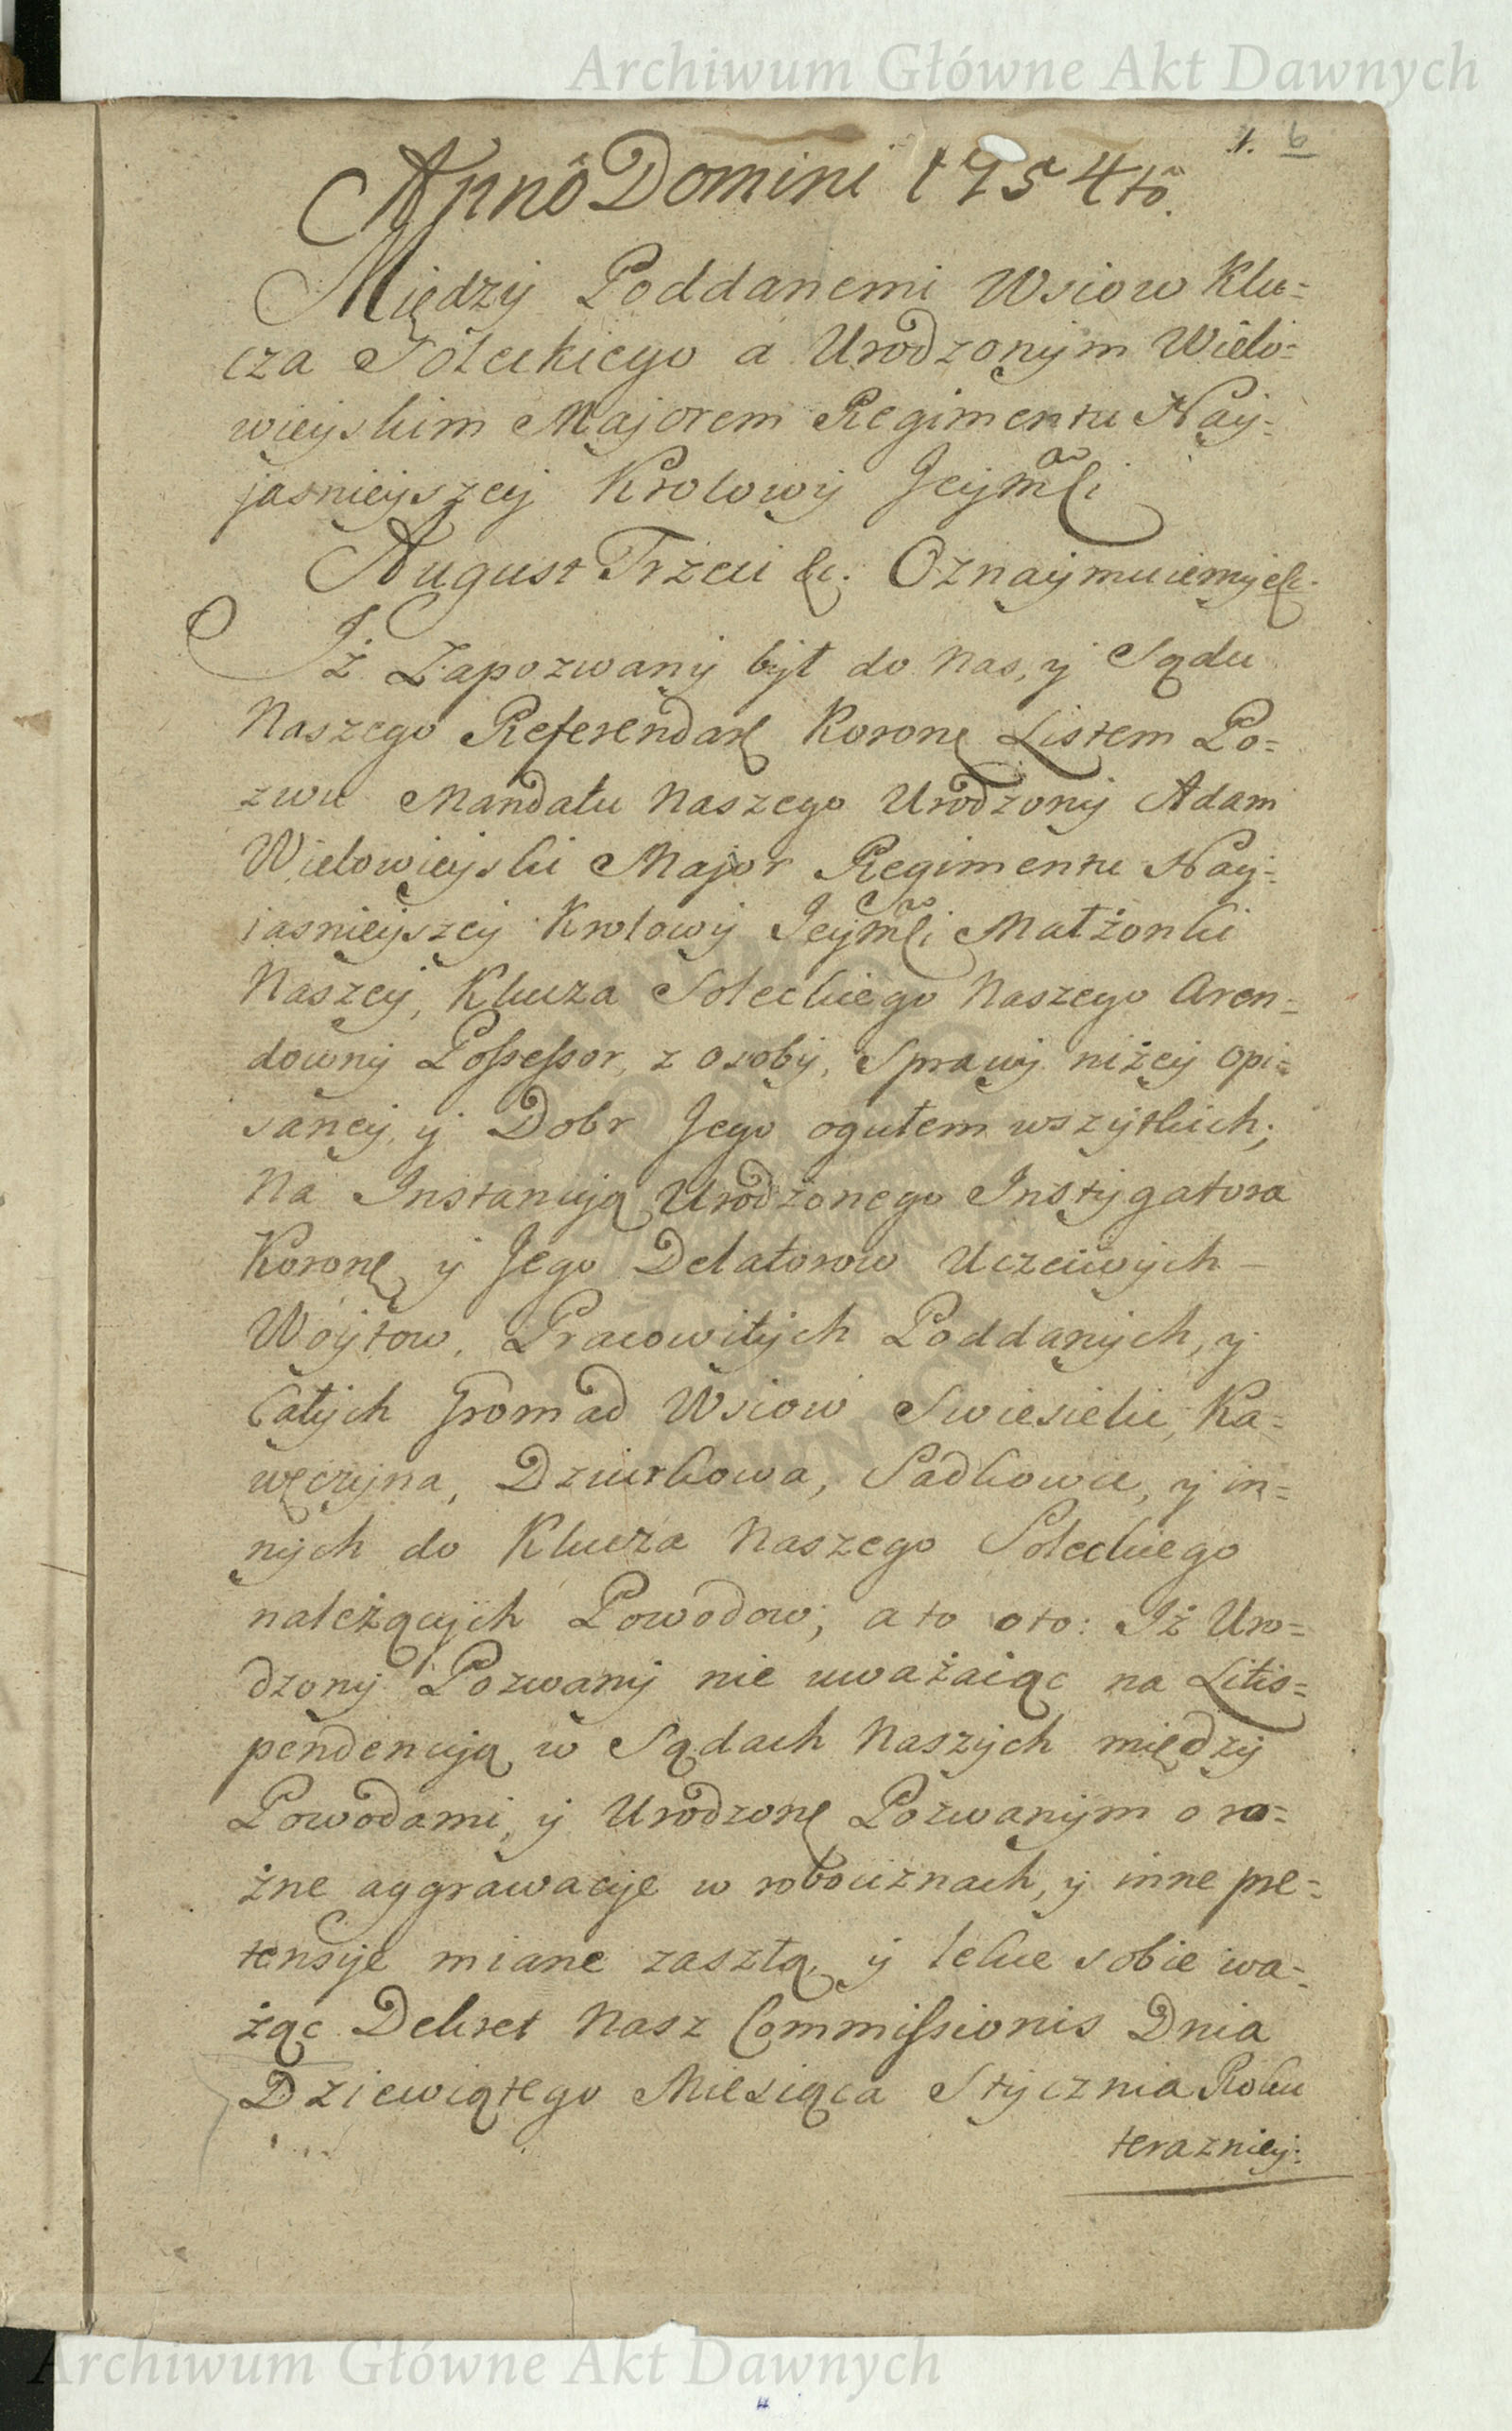 Archiwum Główne Akt Dawnych
1. 6
Annô Domini 1754tô.
Między Poddanemi Wsiow Klu=
cza Soleckiego a Urodzonym Wielo=
wieyskim Majorem Regimentu Nay=
jasnieyszey Krolowy Jeymści
August Trzeci &c. Oznaymuiemy &c.
Iż Zapozwany był do Nas, y Sądu
Naszego Referendar. Koronę Listem Po=
zwu Mandatu Naszego Urodzony Adam
Wielowieyski Major Regimentu Nay=
iasnieyszey Krolowy Jeymści Małżonki
Naszey, Klucza Soleckiego Naszego Aren=
downy Possessor, z osoby, Sprawy niżey opi=
saney, y Dobr Jego ogułem wszytkich;
Na Instancyą Urodzonego Instygatora
Koronę y Jego Delatorow Uczciwych
Woytow, Pracowitych Poddanych, y
Całych Gromad Wsiow Swiesielic, Ka=
węczyna, Dziurkowa, Sadkowic, y in=
nych do Klucza Naszego Soleckiego
należących Powodow; a to oto: Iż Uro=
dzony Pozwany nie uważaiąc na Litis=
pendencyą w Sądach Naszych między
Powodami, y Urodzonę Pozwanym o ro=
żne aggrawacye w robociznach, y inne pre=
tensye miane zaszłą, y lekce sobie wa=
żąc Dekret Nasz Commissionis Dnia
Dziewiątego Miesiąca Stycznia Roku
terazniey:
Archiwum Główne Akt Dawnych